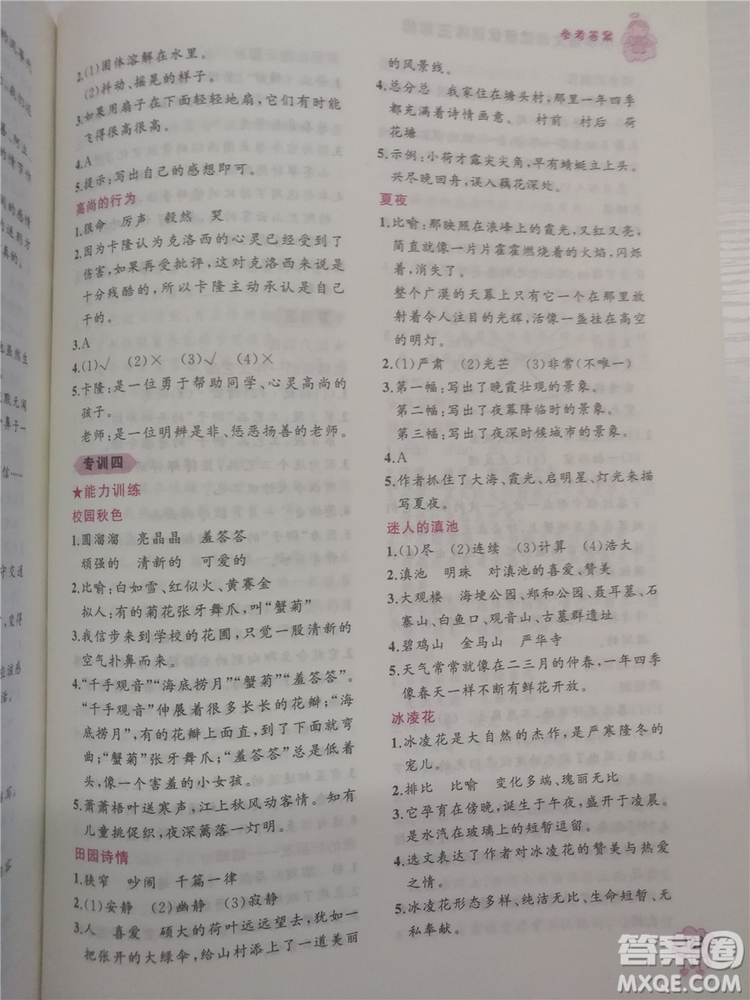 参考答案
2.(1)固体溶解在水里。
(2)抖动、摇晃的样子。
3.如果用扇子在下面轻轻地扇，它们有时能
飞得很高很高。
4.A
5.提示：写出自己的感想即可。
高尚的行为
1.狠命 厉声 毅然 哭
2.因为卡隆认为克洛西的心灵已经受到了
伤害，如果再受批评，这对克洛西来说是
十分残酷的，所以卡隆主动承认是自己
干的。
3.A
4.(1)√ (2)× (3)√ (4)×
5.卡隆：是一位勇于帮助同学、心灵高尚的
孩子。
老师：是一位明辨是非、惩恶扬善的老师。
专训四
★能力训练
校园秋色
1.圆溜溜 亮晶晶 羞答答
顽强的 清新的 可爱的
2.比喻：白如雪、红似火、黄赛金
拟人：有的菊花张牙舞爪，叫“蟹菊”
3.我信步来到学校的花圃，只觉一股清新的
空气扑鼻而来。
4.“千手观音”“海底捞月”“蟹菊”“羞答答”。
“千手观音”伸展着很多长长的花瓣；“海
底捞月”有的花瓣上面直，到了下面突然
卷；“蟹菊”张牙舞爪；“羞答答”总是低着
头，像一个害羞的小女孩。
5.萧萧梧叶送寒声，江上秋风动客情。知有
儿童挑促织，夜深篱落一灯明。
田园诗情
1.狭窄 吵闹 千篇一律
2.(1)安静 (2)幽静 (3)寂静
3.人 喜爱 硕大的荷叶远远望去，犹如一
把把张开的大绿伞，给山村添上了一道美丽
的风景线。
4.总分总 我家住在塘头村，那里一年四季
都充满着诗情画意。 村前 村后 荷
花塘
5.示例：小荷才露尖尖角，早有蜻蜓立上头。
兴尽晚回舟，误入藕花深处。
夏夜
1.比喻：那映照在浪峰上的霞光，又红又亮，
简直就像一片片霍霍燃烧着的火焰，闪烁
着，消失了。
整个广漠的天幕上只有它在那里放
射着令人注目的光辉，活像一盏挂在高空
的明灯。
2.(1)严肃 (2)光芒 (3)非常(不唯一)
3.第一幅：写出了晚霞壮观的景象。
第二幅：写出了夜幕降临时的景象。
第三幅：写出了夜深时候城市的景象。
4.A
5.作者抓住了大海、霞光、启明星、灯光来描
写夏夜。
迷人的滇池
1.(1)尽 (2)连续 (3)计算 (4)浩大
2.滇池 明珠 对滇池的喜爱、赞美
3.大观楼 海埂公园、郑和公园、聂耳墓、石
寨山、白鱼口、观音山、古墓群遗址
4.碧鸡山 金马山 严华寺
5.天气常常就像在二三月的仲春，一年四季
都像春天一样，不断有鲜花开放。
冰凌花
1.冰凌花是大自然的杰作，是严寒隆冬的
宠儿。
2.排比 比喻 变化多端、瑰丽无比
3.它孕育在傍晚，诞生于午夜，盛开于凌晨。
是水汽在玻璃上的短暂逗留。
4.选文表达了作者对冰凌花的赞美与热爱
之情。
5.冰凌花形态多样、纯洁无比、生命短暂、无
私奉献。
答案圈
MXQE.COM